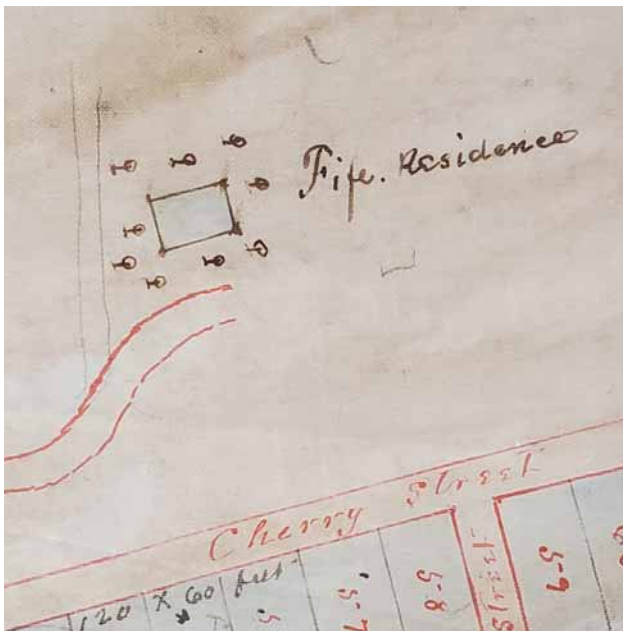 Fife. Residence
Cherry Street
120 X 60 feet
5-7
5-8
5-9